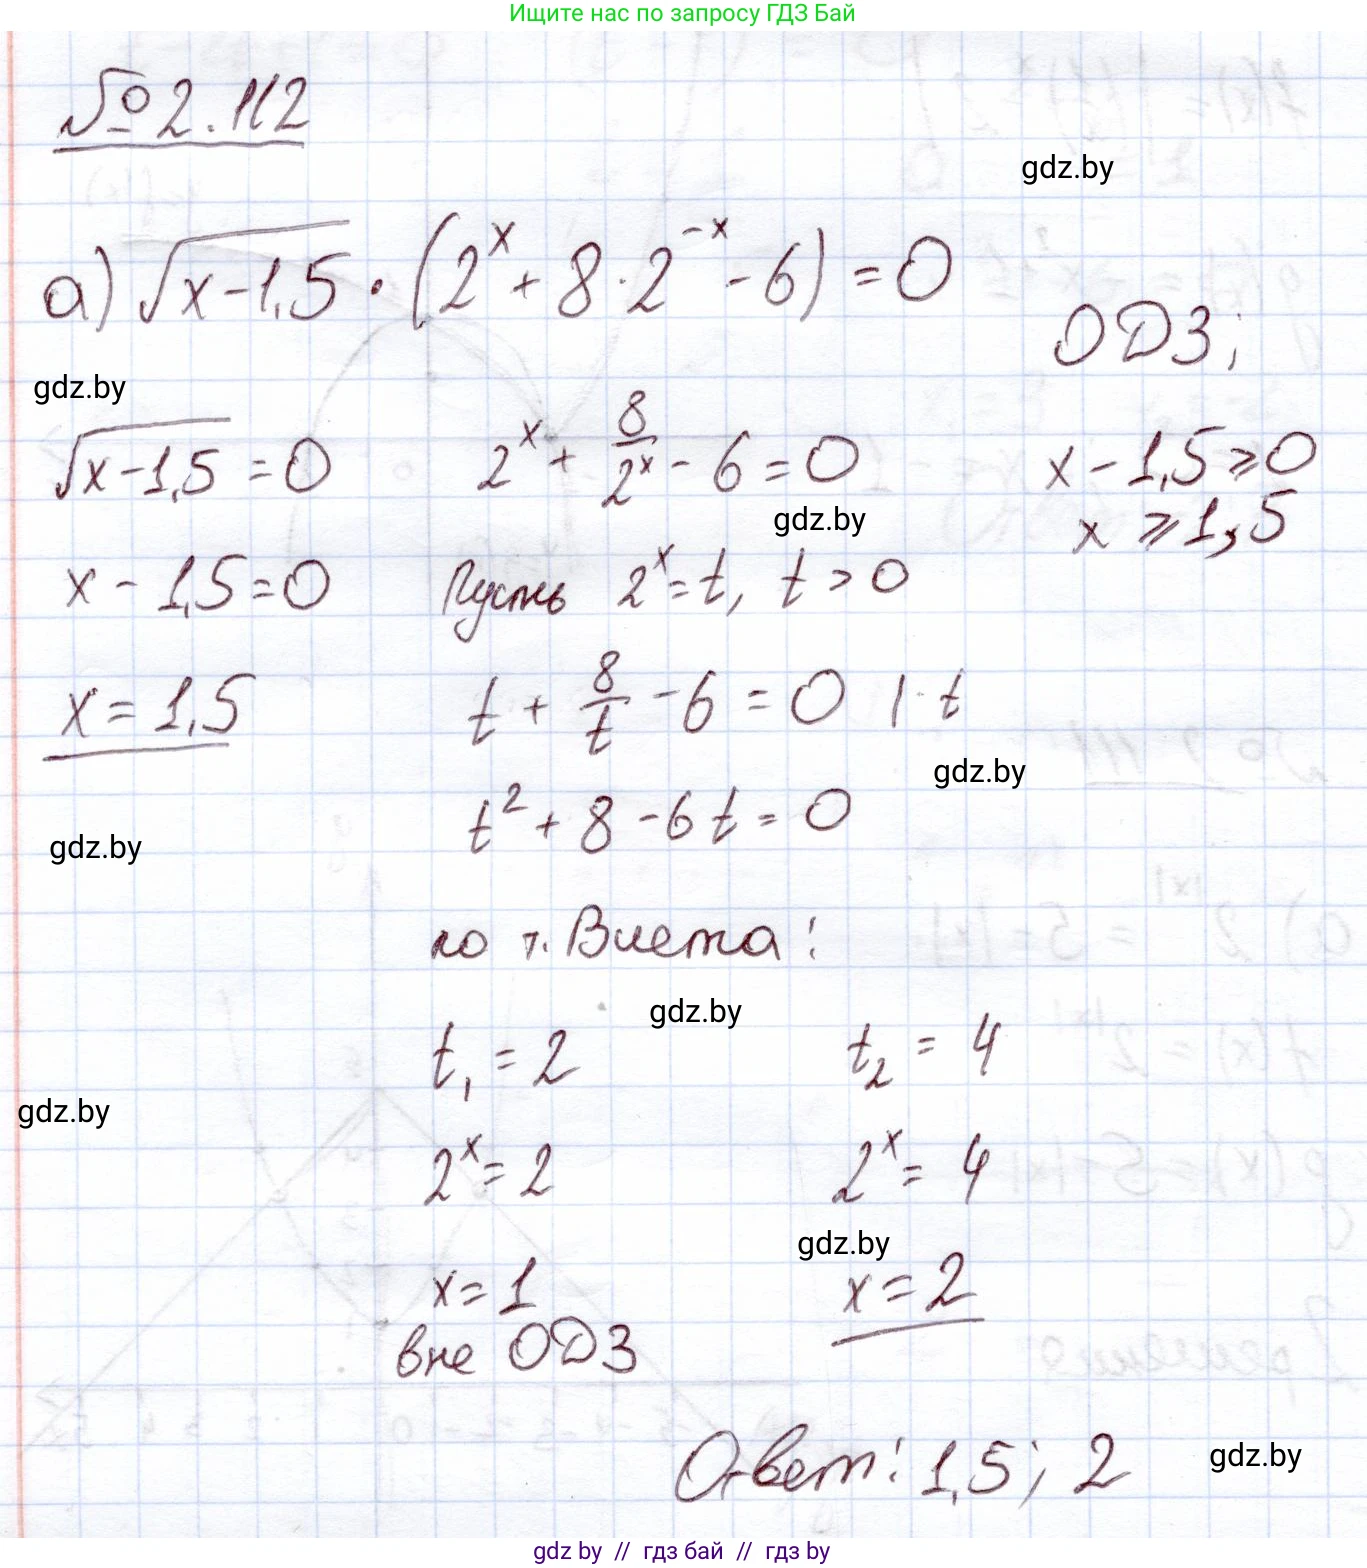 Ищите нас по запросу ГДЗ Бай
№ 2.112
gdz.by
а) √(x-1,5) · (2^x + 8 · 2^(-x) - 6) = 0
ОДЗ;
gdz.by
√(x-1,5) = 0    2^x + 8/2^x - 6 = 0    x - 1,5 ⩾ 0
gdz.by    x ⩾ 1,5
x - 1,5 = 0    Пусть 2^x = t, t > 0
x = 1,5    t + 8/t - 6 = 0 | · t
gdz.by
t² + 8 - 6t = 0
gdz.by
по т. Виета:
gdz.by
t₁ = 2    t₂ = 4
gdz.by
2^x = 2    2^x = 4
gdz.by
x = 1    x = 2
вне ОДЗ
Ответ: 1,5; 2    gdz.by
gdz by // гдз бай // гдз by